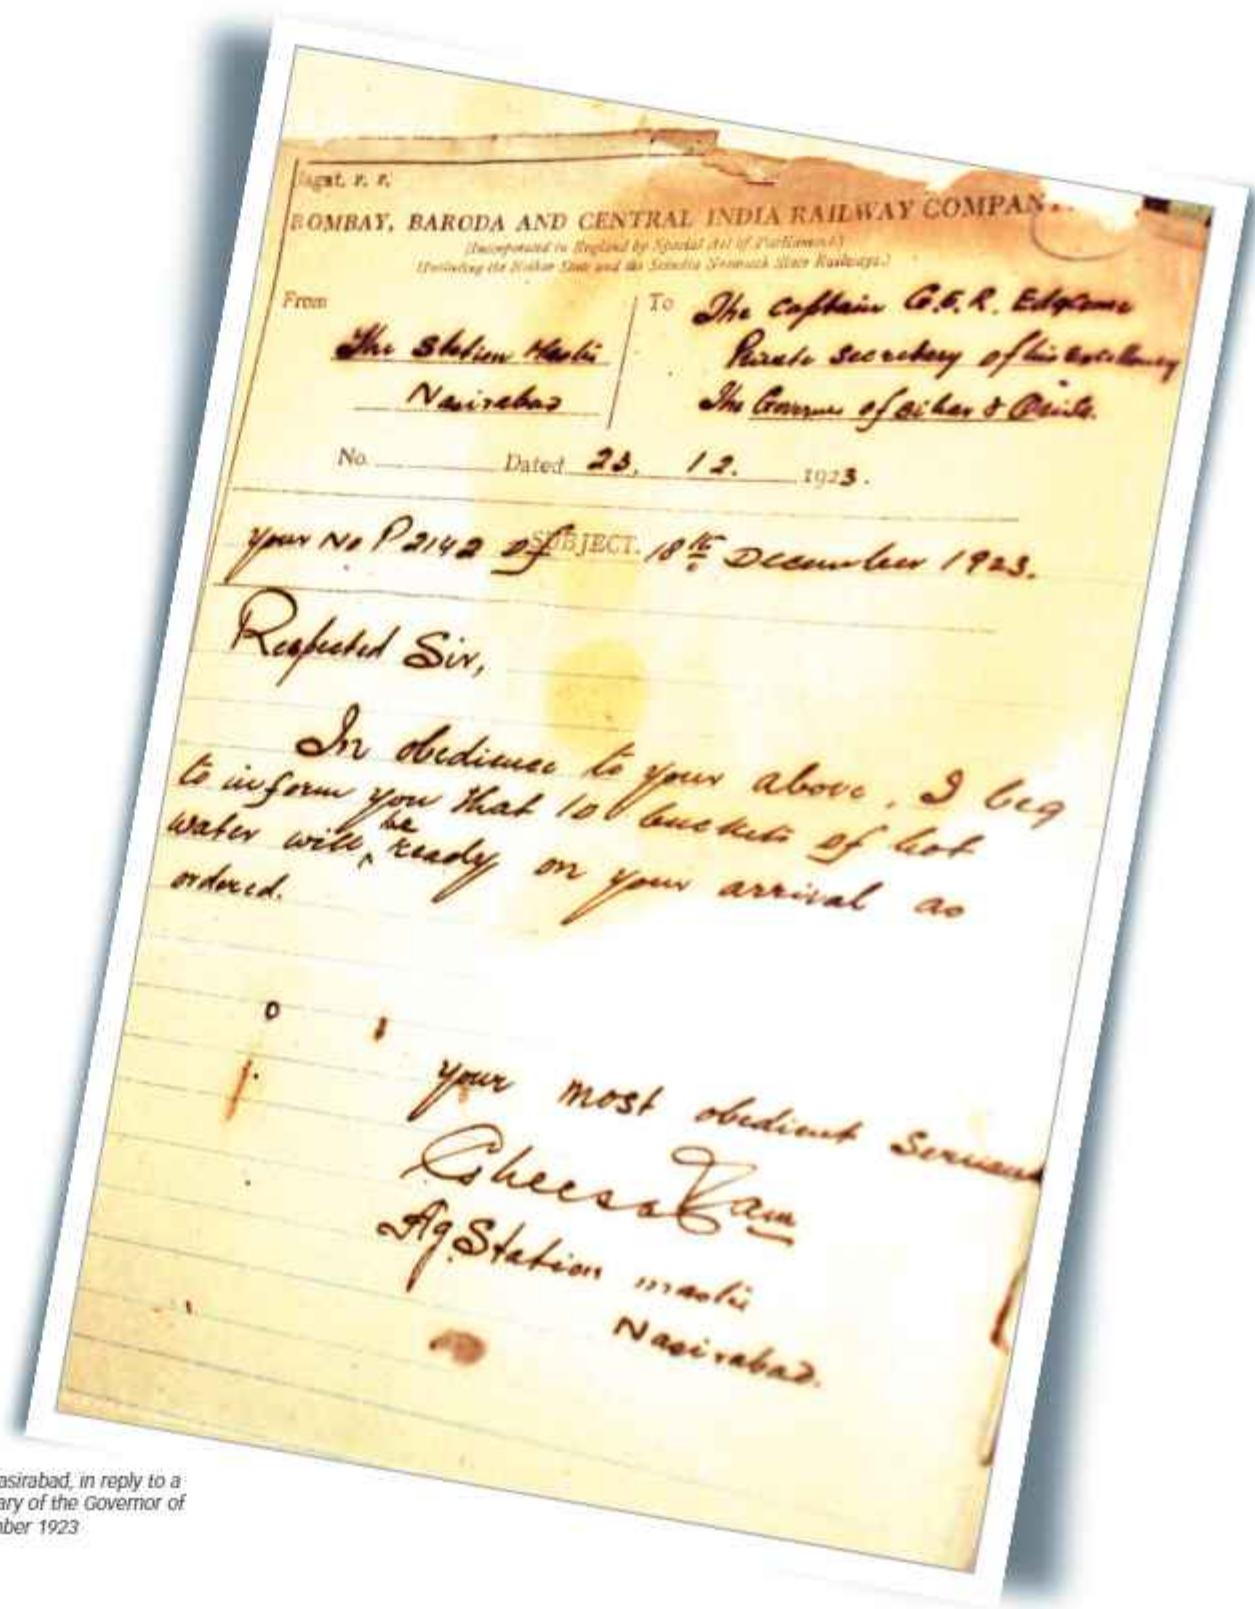 agat. r. r.
BOMBAY, BARODA AND CENTRAL INDIA RAILWAY COMPAN
(Incorporated in England by Special Act of Parliament.)
(Including the Holkar State and the Scindia Neemuch State Railways.)
From
The Station Master
Nasirabad
To The Captain G.F.R. Edgcome
Private Secretary of his Excellency
The Governor of Bihar &
No. Dated 23. 12. 1923.
SUBJECT.
your No P 2142 of 18th December 1923.
Respected Sir,
In obedience to your above, I beg
to inform you that 10 buckets of hot
water will be ready on your arrival as
ordered.
your most obedient Servant
Gheesa Ram
Ag. Station master
Nasirabad.
asirabad, in reply to a
ary of the Governor of
mber 1923